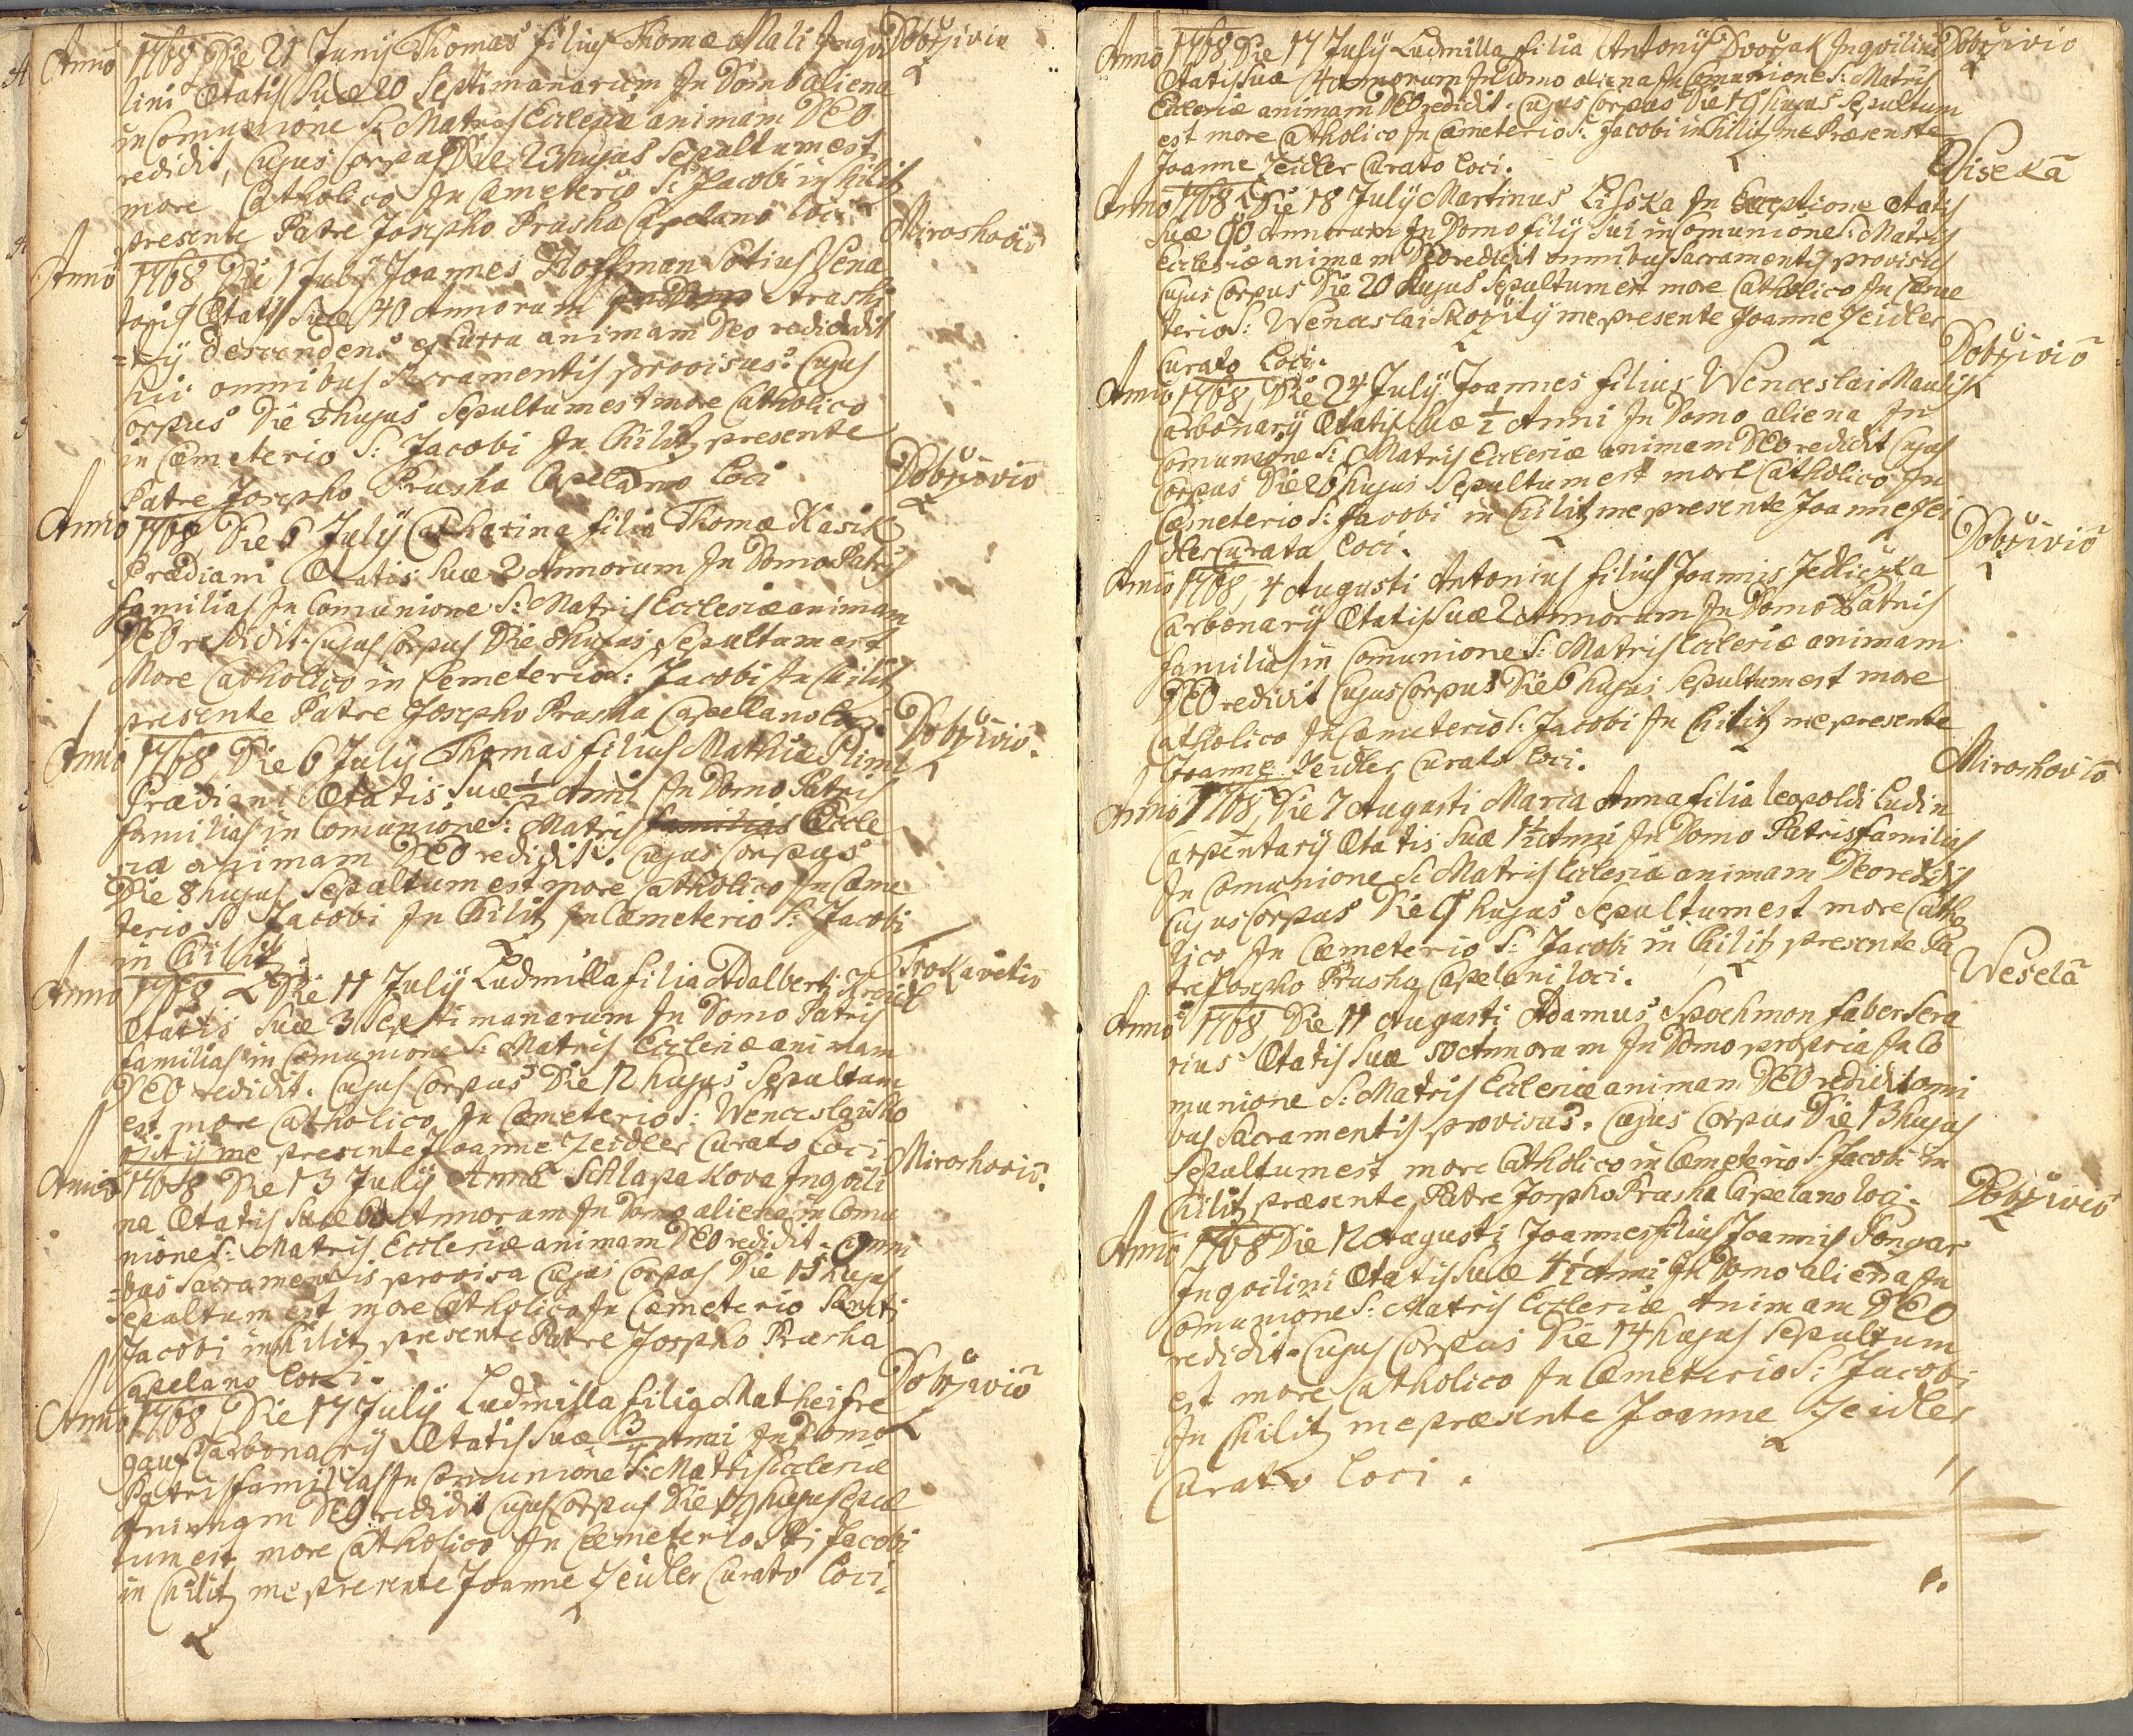 Anno 1768 Die 21 Junij Thomas filius Thomæ Mali Inqvi Dobrziwio
lini Ætatis Suæ 20 Septimanarum In Domo aliena
in Comunione S: Matris Ecclesiæ animam DEO
redidit, Cujus Corpus Die 23 hujus Sepultum est
more Catholico In Cæmeterio S: Jacobi in Chilitz
presente Patre Josepho Prusha Capelano loci
Miroshovio
Anno 1768 Die 1 July Joannes Hoffman Sotius Vena
toris Ætatis Suæ 40 Annorum Strashi
=tzij descendens ex Curru animam Deo redidit
omnibus Sacramentis provisus. Cujus
Corpus Die 3 hujus Sepultum est more Catholico
in Cæmeterio S: Jacobi In Chilitz presente
Patre Josepho Prusha Capelano loci
Dobrziovio
Anno 1768 Die 6 July Catharina filia Thomæ Kasik
Prædiani Ætatis Suæ 2 Annorum In Domo Patris
familias In Comunione S: Matris Ecclesiæ animam
DEO redidit. Cujus Corpus Die 8 hujus Sepultum est
More Catholico in Cemeterio S: Jacobi In Chilitz
presente Patre Josepho Prusha Capellano loci
Dobrzivio.
Anno 1768 Die 6 July Thomas filius Mathiæ Plim
Prædiani Ætatis Suæ 1/2 Anni In Domo Patris
familias in Comunione S: Matris familias Eccle
siæ animam DEO redidit. Cujus Corpus
Die 8 hujus Sepultum est more Catholico In Cæme
terio S: Jacobi In Chilitz In Cæmeterio S: Jacobi
in Chilitz
Strokavetio
Anno 1768 Die 11 July Ludmilla filia Adalberti
Ætatis Suæ 3 Septimanarum In Domo Patris
familias in Comunione S: Matris Ecclesiæ animam
DEO redidit. Cujus Corpus Die 12 hujus Sepultum
est more Catholico In Cæmeterio S: Wenceslai Sko
rzitij me presente Joanne Zeidler Curato Loci
Miroshovio.
Anno 1768 Die 13 July Anna Schlapakova Inqvili
na Ætatis Suæ Annorum In Domo aliena in Comu
nione S: Matris Ecclesiæ animam DEO redidit. Omni
=bus Sacramentis provisa Cujus Corpus Die 15 hujus
Sepultum est more Catholico In Cæmeterio Sancti
Jacobi in Chilitz presente Patre Josepho Prusha
Capelano loci.
Dobrziwio
Anno 1768 Die 17 July Ludmilla filia Mathei fre
gauf Carbonarij Ætatis Suæ 3/4 Anni In Domo
Patris familias In Comunione S: Matris Ecclesiæ
Animam DEO redidit Cujus Corpus Die 19 hujus Sepul
tum est more Catholico In Cæmeterio Sti Jacobi
in Chilitz me presente Joanne Zeidler Curato loci.
Anno 1768 Die 17 July Ludmilla filia Antonij Dvorzak Inqvilini Dobrzivio
Ætatis Suæ 4 Annorum In Domo aliena In Comunione S: Matris
Ecclesiæ animam DEO redidit. Cujus Corpus Die 19 hujus Sepultum
est more Catholico In Cæmeterio S: Jacobi in Chilitz me Præsente
Joanne Zeidler Curato loci.
Wiseka
Anno 1768 Die 18 July Martinus Lisska In Exceptione ætatis
Suæ 90 Annorum In Domo filij Sui in Comunione S: Matris
Ecclesiæ animam DEO redidit omnibus Sacramentis provisus
Cujus Corpus Die 20 hujus Sepultum est more Catholico In Cæme
terio S: Wenceslai Skorzitij me presente Joanne Zeidler
Curato Loci.
Dobrzivio
Anno 1768, Die 24 July Joannes filius Wenceslai Maulis
Carbonarij Ætatis Suæ 1/2 Anni In Domo aliena In
Comunione S: Matris Ecclesiæ animam DEO redidit Cujus
Corpus Die 26 hujus Sepultum est more Catholico In
Cæmeterio S: Jacobi in Chilitz me presente Joanne Zei
dler Curato loci.
Dobrzivio
Anno 1768, 4 Augusti Antonius filius Joannis Jedliczka
Carbonarij Ætatis Suæ 2 Annorum In Domo Patris
familias in Comunione S: Matris Ecclesiæ animam
DEO redidit Cujus Corpus Die 6 hujus Sepultum est more
Catholico In Cæmeterio S: Jacobi In Chilitz me presente
Joanne Zeidler Curato loci.
Miroshovio
Anno 1768, Die 7 Augusti Maria Anna filia Leopoldi Ludin
Carpentarij Ætatis Suæ 1 1/2 Anni In Domo Patris familias
In Comunione S: Matris Ecclesiæ animam Deo redidit
Cujus Corpus Die 9 hujus Sepultum est more Catho
lico In Cæmeterio S: Jacobi in Chilitz presente Pa
tre Josepho Prusha Capelani loci.
Wesela
Anno 1768 Die 11 Augusti Adamus Spochmon faber Sera
rius Ætatis Suæ 50 Annorum In Domo propria In Co
munione S: Matris Ecclesiæ animam DEO redidit omni
bus Sacramentis provisus. Cujus Corpus Die 13 hujus
Sepultum est more Catholico in Cæmeterio S: Jacobi in
Chilitz præsente Patre Josepho Prusha Capelano loci.
Dobrziwio
Anno 1768 Die 12 Augusti Joannes filius Joannis Pongar
Inqvilini Ætatis Suæ 4 1/2 Anni In Domo aliena In
Comunione S: Matris Ecclesiæ Animam DEO
redidit. Cujus Corpus Die 14 hujus Sepultum
est more Catholico In Cæmeterio S: Jacobi
In Chilitz me præsente Joanne Zeidler
Curato loci.